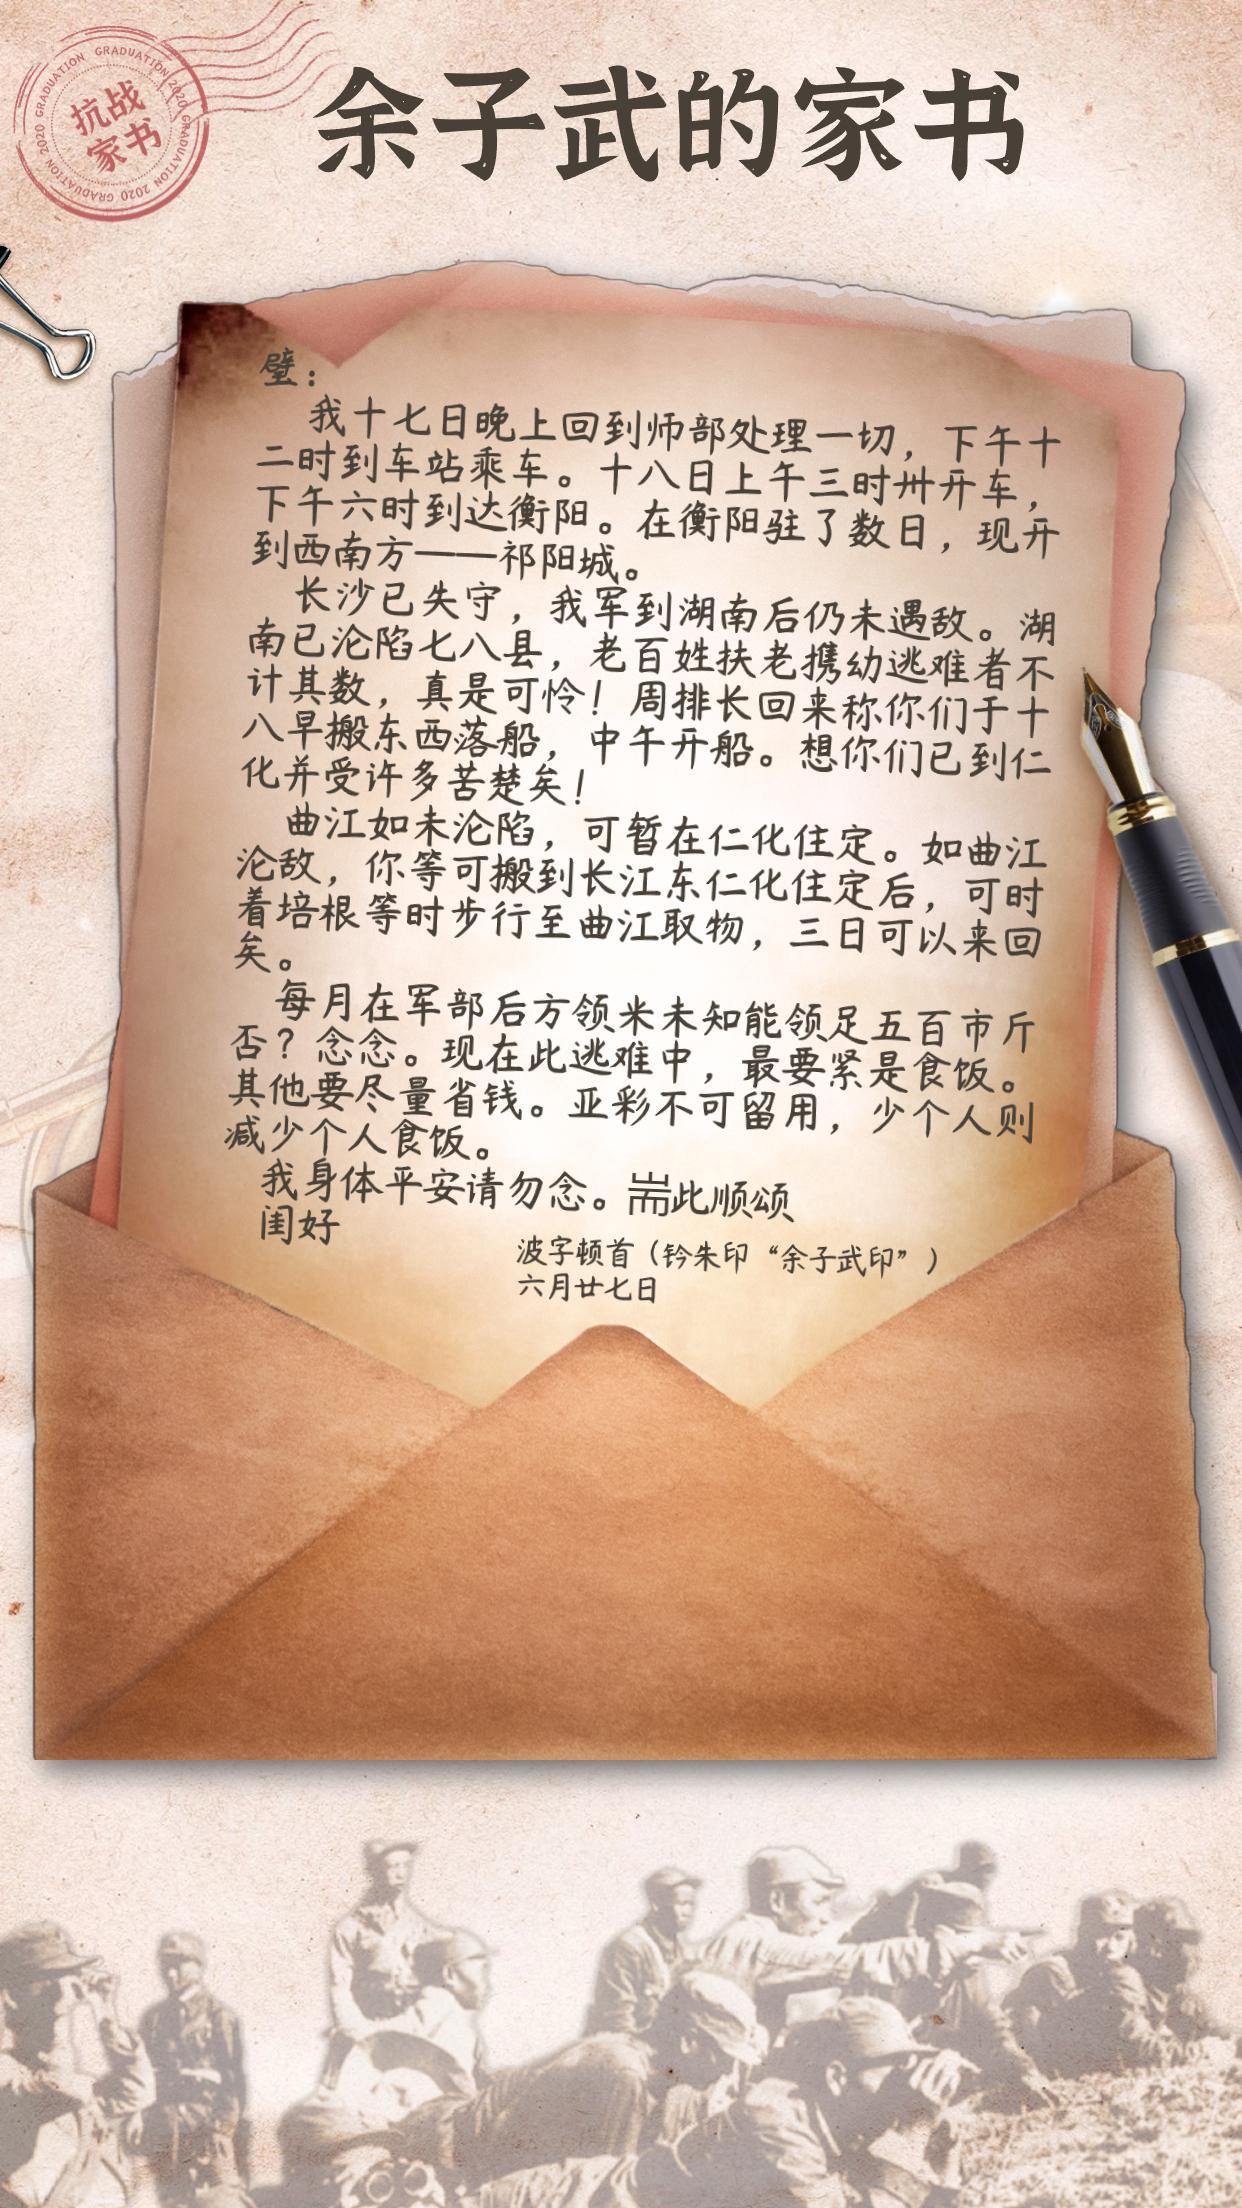 余子武的家书
抗战
家书
GRADUATION 2020 GRADUATION 2020 GRADUATION 2020 GRADUATION 2020
璧：
我十七日晚上回到师部处理一切，下午十
二时到车站乘车。十八日上午三时卅开车，
下午六时到达衡阳。在衡阳驻了数日，现开
到西南方——祁阳城。
长沙已失守，我军到湖南后仍未遇敌。湖
南已沦陷七八县，老百姓扶老携幼逃难者不
计其数，真是可怜！周排长回来称你们于十
八早搬东西落船，中午开船。想你们已到仁
化并受许多苦楚矣！
曲江如未沦陷，可暂在仁化住定。如曲江
沦敌，你等可搬到长江东仁化住定后，可时
着培根等时步行至曲江取物，三日可以来回
矣。
每月在军部后方领米未知能领足五百市斤
否？念念。现在此逃难中，最要紧是食饭。
其他要尽量省钱。亚彩不可留用，少个人则
减少个人食饭。
我身体平安请勿念。耑此顺颂
闺好
波字顿首（钤朱印“余子武印”）
六月廿七日